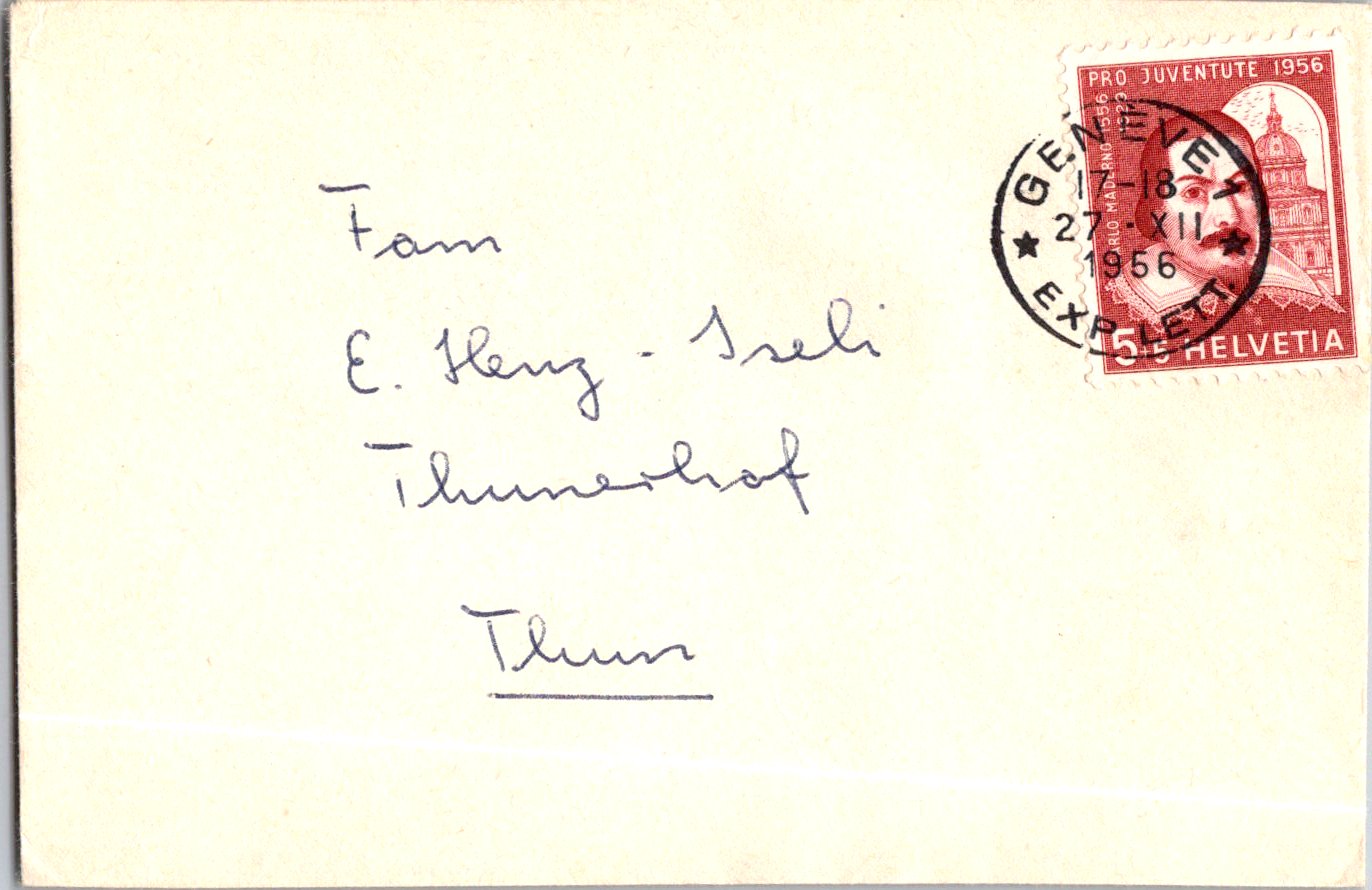 PRO JUVENTUTE 1956
CARLO MADERNO 1556
1629
GENÈVE 1
17-18
27.XII
1956
EXP. LETT.
5+5 HELVETIA
Fam
E. Henz - Iseli
Thunerhof
Thun